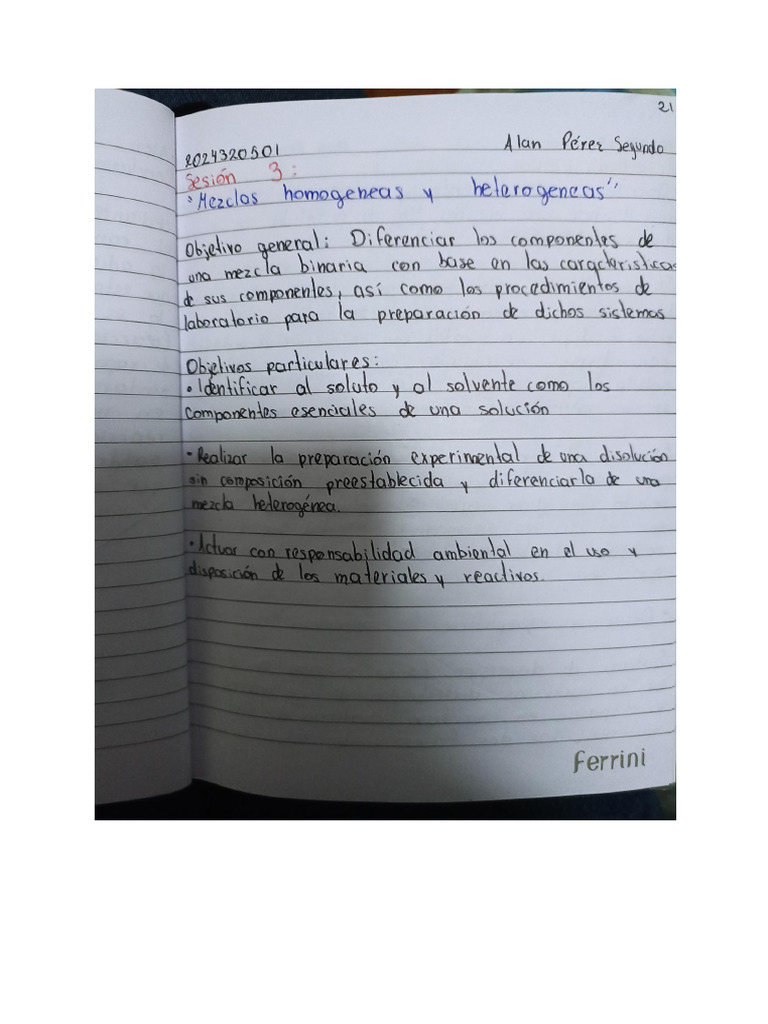 21
2024320501 Alan Pérez Segundo
Sesión 3:
"Mezclas homogeneas y heterogeneas"
Objetivo general: Diferenciar los componentes de
una mezcla binaria con base en las caracteristicas
de sus componentes, así como los procedimientos de
laboratorio para la preparación de dichos sistemas
Objetivos particulares:
• Identificar al soluto y al solvente como los
componentes esenciales de una solución
• Realizar la preparación experimental de una disolución
sin composición preestablecida y diferenciarla de una
mezcla heterogénea.
• Actuar con responsabilidad ambiental en el uso y
disposición de los materiales y reactivos.
Ferrini